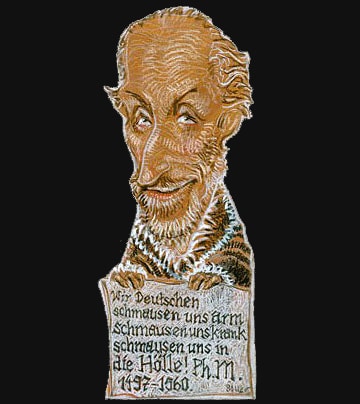 Wir Deutschen
schmausen uns arm
schmausen uns krank
schmausen uns in
die Hölle! Ph. M.
1497-1960